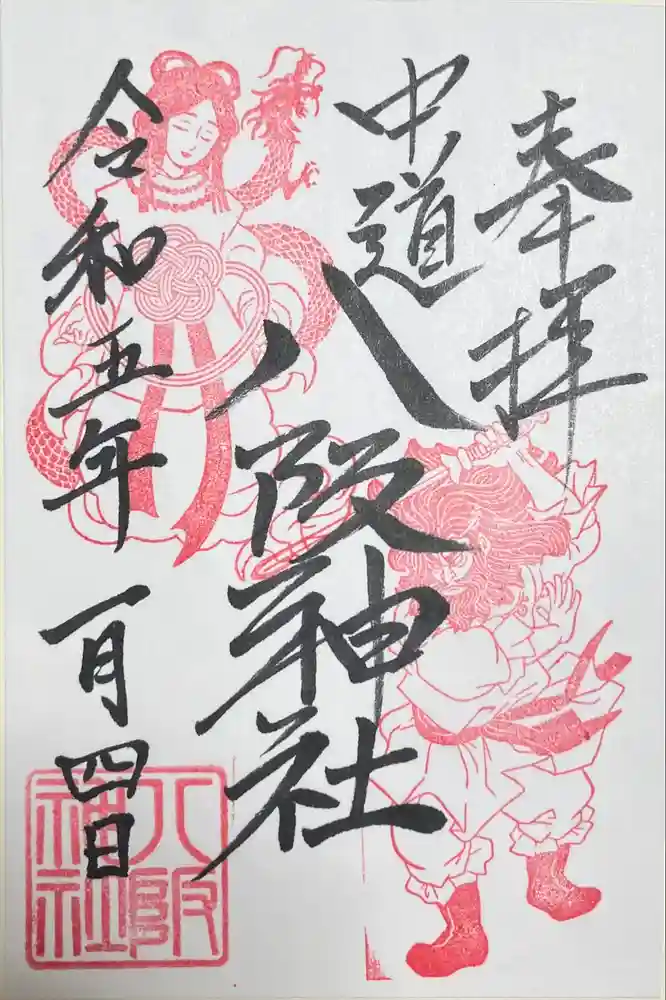 奉拝
中道
八阪神社
令和五年一月四日
八阪
神社